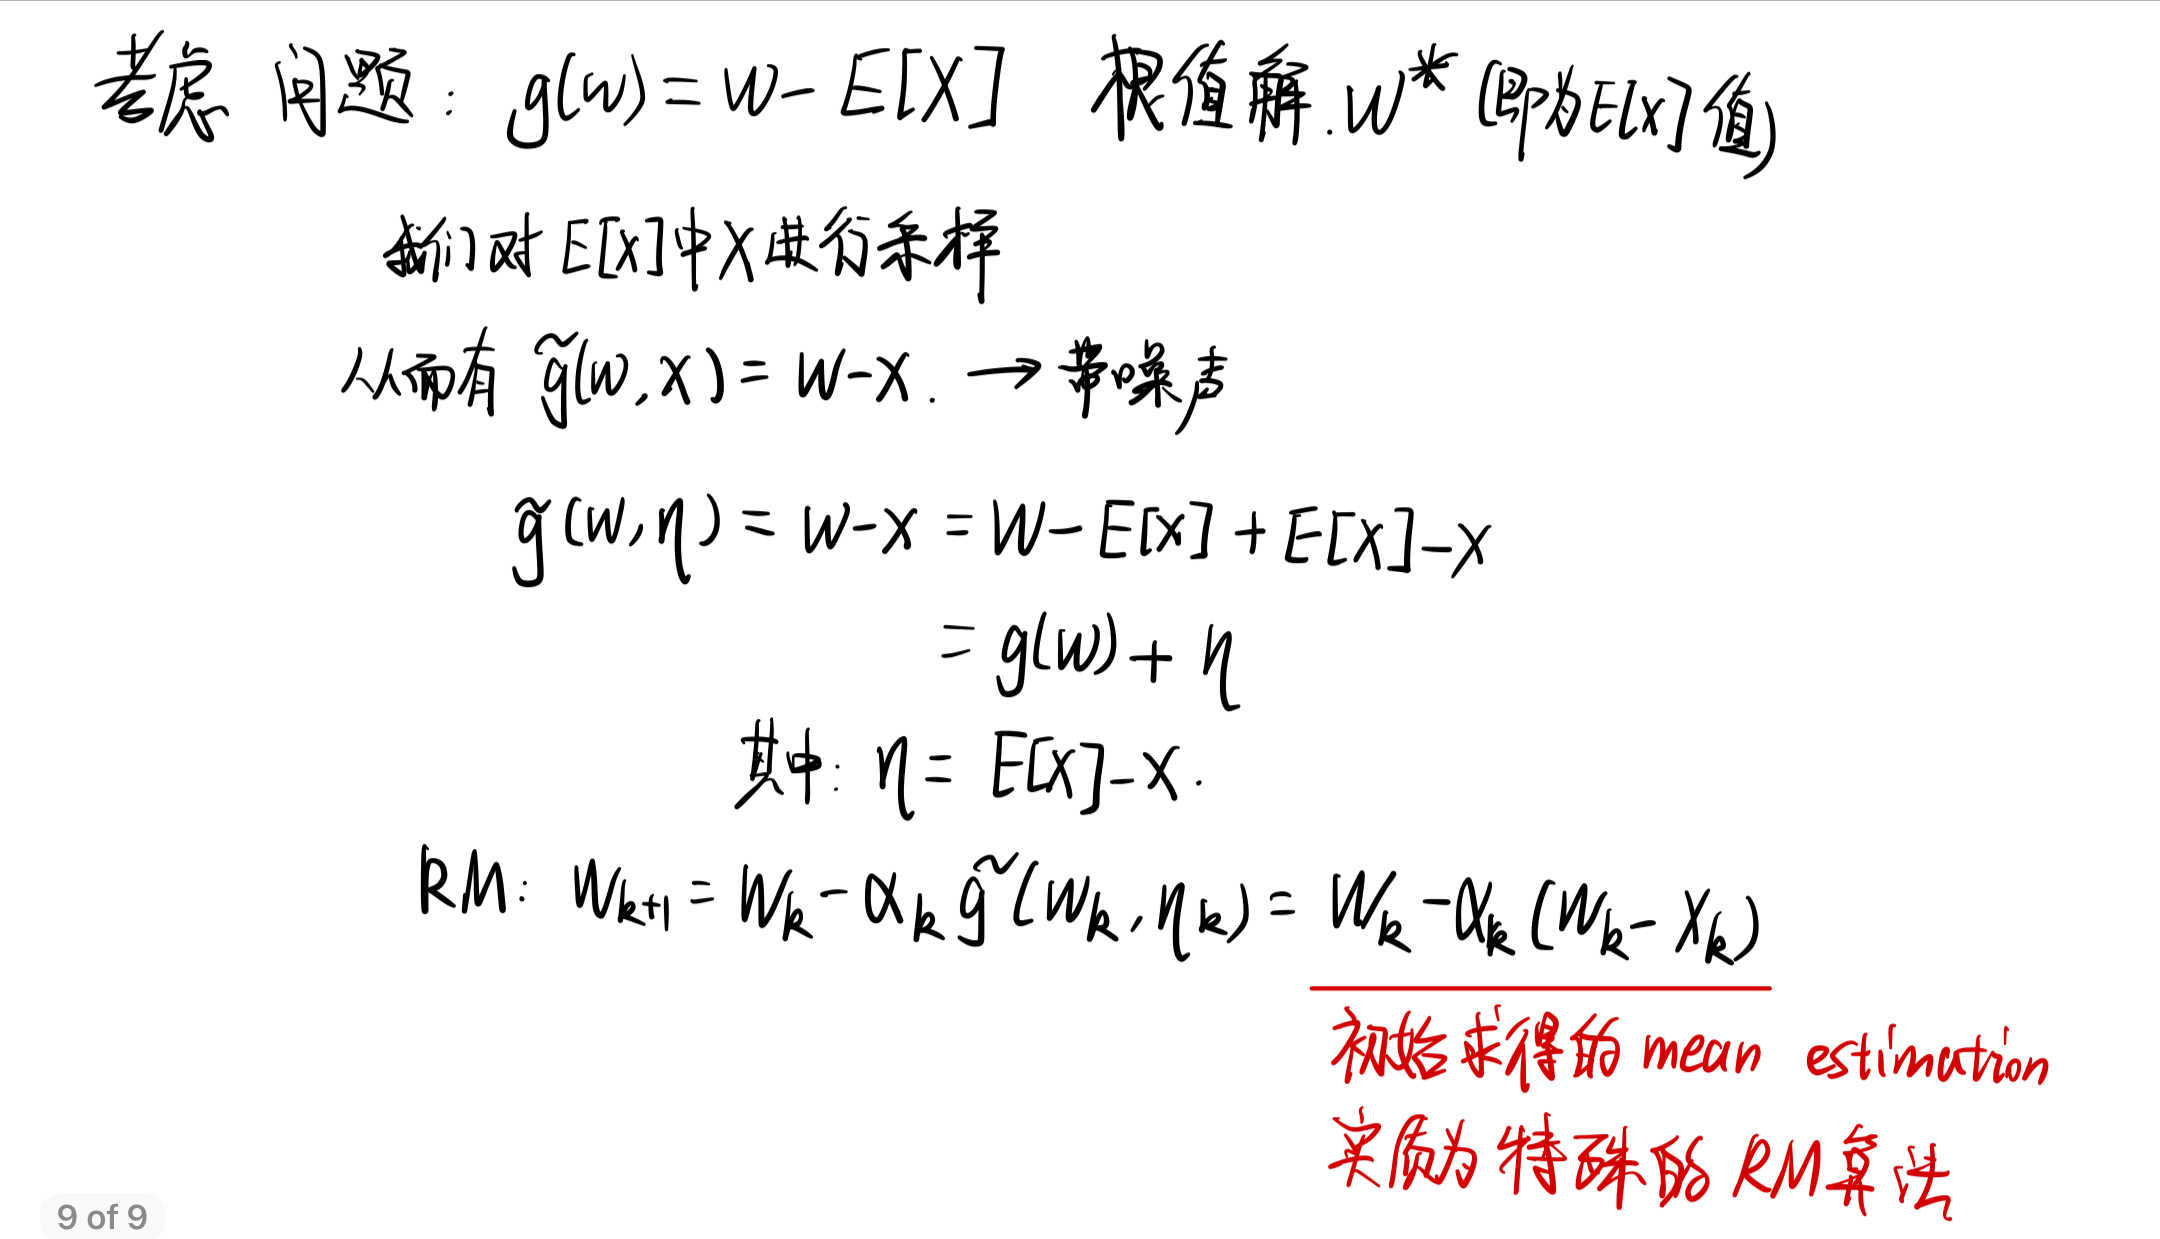 考虑 问题: g(w) = w - E[X] 根值解. w* (即为E[X]值)
我们对 E[X]中X进行采样
从而有 g̃(w, x) = w - x. → 带噪声
g̃(w, η) = w - x = w - E[X] + E[X] - x
= g(w) + η
其中: η = E[X] - x.
RM: w_{k+1} = w_k - α_k g̃(w_k, η_k) = w_k - α_k (w_k - x_k)
初始求得的 mean estimation
实质为特殊的 RM算法
9 of 9